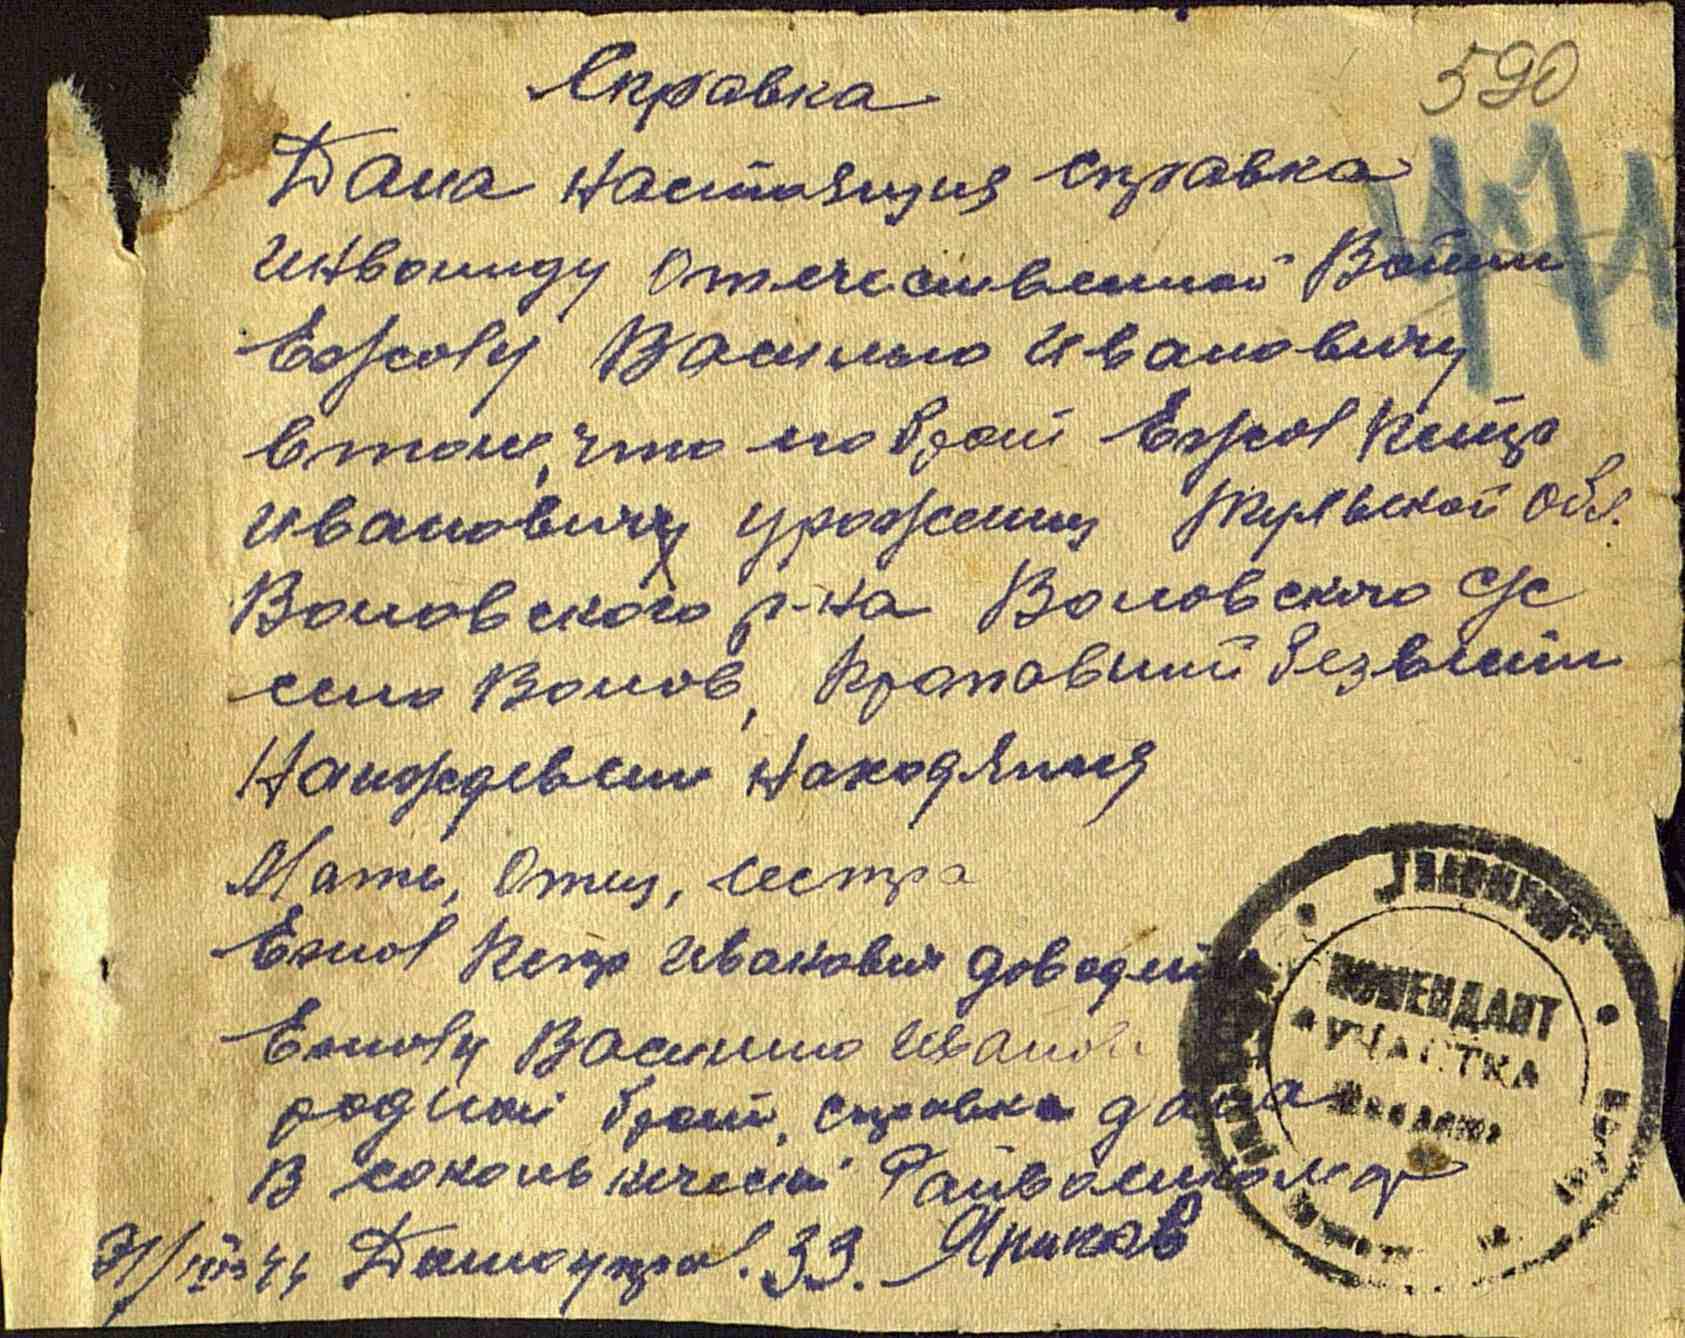 Справка
590
Дана настоящия справка
инвалиду Отечественной Войны
Ежову Василию Ивановичу
в том, что его брат Ежов Петр
Ивановичу уроженец Тульской обл.
Воловского р-на Воловского с/с
село Волов, пропавший без вести
На иждевении находятся
Мать, Отец, сестра
Ежов Петр Иванович доводится
Ежову Василию Иванов
родной брат, справка дана
в сокольнический Райвоенкомат
Домоупра. 33.
КОМЕНДАНТ
УЧАСТКА